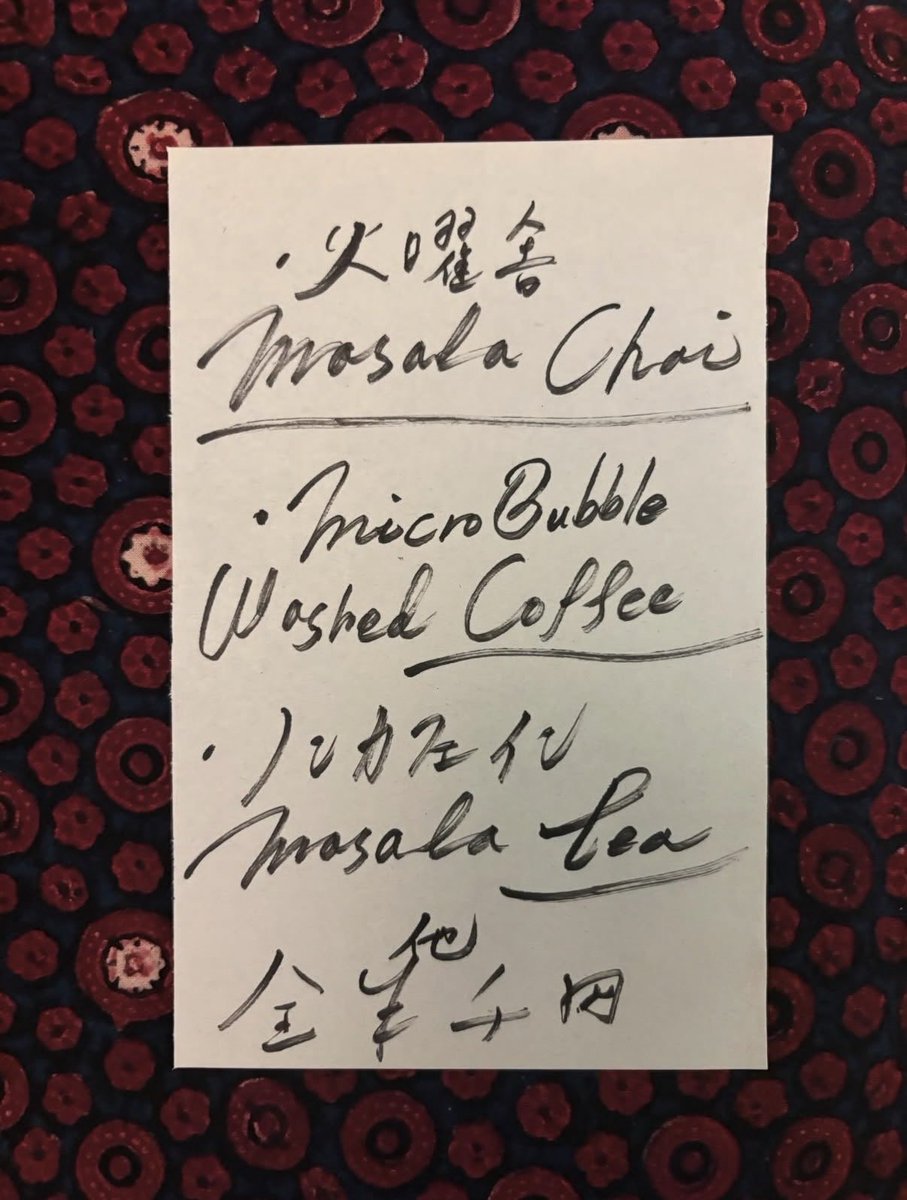 ・火曜舎
Masala Chai
・Micro Bubble
Washed Coffee
・ノンカフェイン
Masala tea
全 千円